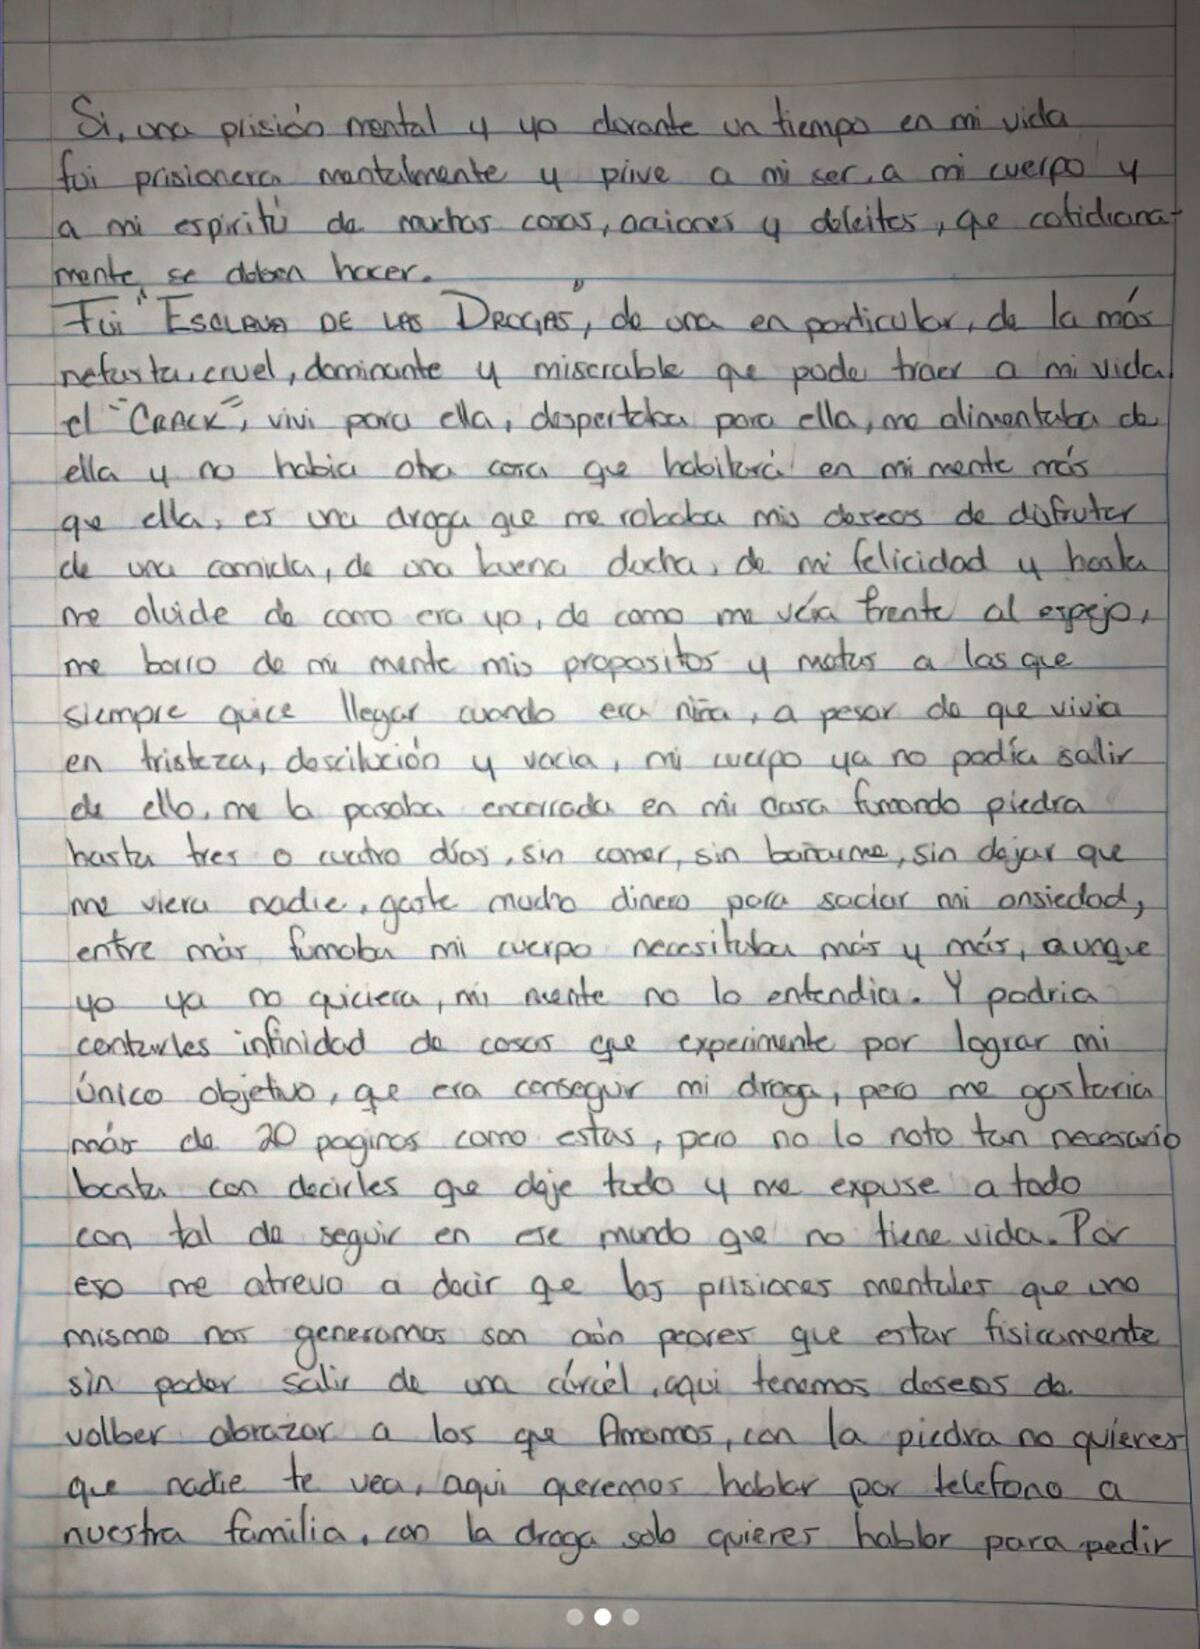 Si, una prisión mental y yo durante un tiempo en mi vida
fui prisionera mentalmente y prive a mi ser, a mi cuerpo y
a mi espiritú de muchas cosas, acciones y deleites, que cotidiana-
mente, se deben hacer.
Fui "ESCLAVA DE LAS DROGAS", de una en particular, de la más
nefasta, cruel, dominante y miserable que pude traer a mi vida
el "CRACK", vivi para ella, despertaba para ella, me alimentaba de
ella y no habia otra cosa que habitará en mi mente más
que ella, es una droga que me robaba mis deseos de disfrutar
de una comida, de una buena ducha, de mi felicidad y hasta
me olvide de como era yo, de como me véia frente al espejo,
me borro de mi mente mis propositos y metas a las que
siempre quice llegar cuando era niña, a pesar de que vivia
en tristeza, descilución y vacia, mi cuerpo ya no podía salir
de ello, me la pasaba encerrada en mi casa fumando piedra
hasta tres o cuatro días, sin comer, sin bañarme, sin dejar que
me viera nadie, gaste mucho dinero para saciar mi ansiedad,
entre más fumaba mi cuerpo necesitaba más y más, aunque
yo ya no quiciera, mi mente no lo entendia. Y podria
contarles infinidad de cosas que experimente por lograr mi
único objetivo, que era conseguir mi droga, pero me gastaria
más de 20 paginas como estas, pero no lo noto tan necesario
basta con decirles que deje todo y me expuse a todo
con tal de seguir en ese mundo que no tiene vida. Por
eso me atrevo a decir que las prisiones mentales que uno
mismo nos generamos son aún peores que estar fisicamente
sin poder salir de una cárcel, aqui tenemos deseos de
volber abrazar a los que Amamos, con la piedra no quieres
que nadie te vea, aqui queremos hablar por telefono a
nuestra familia, con la droga solo quieres hablar para pedir